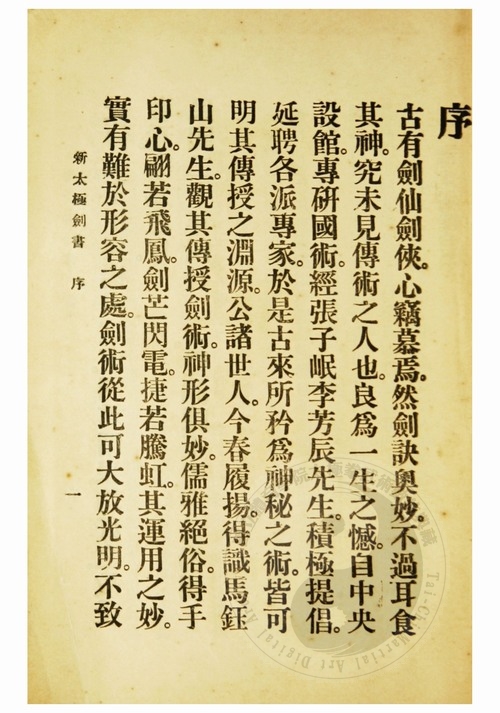 序
古有劍仙劍俠。心竊慕焉。然劍訣奧妙。不過耳食
其神。究未見傳術之人也。良為一生之憾。自中央
設館。專研國術。經張子岷李芳辰先生。積極提倡。
延聘各派專家。於是古來所矜為神秘之術。皆可
明其傳授之淵源。公諸世人。今春履揚。得識馬鈺
山先生。觀其傳授劍術。神形俱妙。儒雅絕俗。得手
印心。翩若飛鳳。劍芒閃電。捷若騰虹。其運用之妙。
實有難於形容之處。劍術從此可大放光明。不致
新太極劍書 序 一
Tai-Chi Martial Art Digital